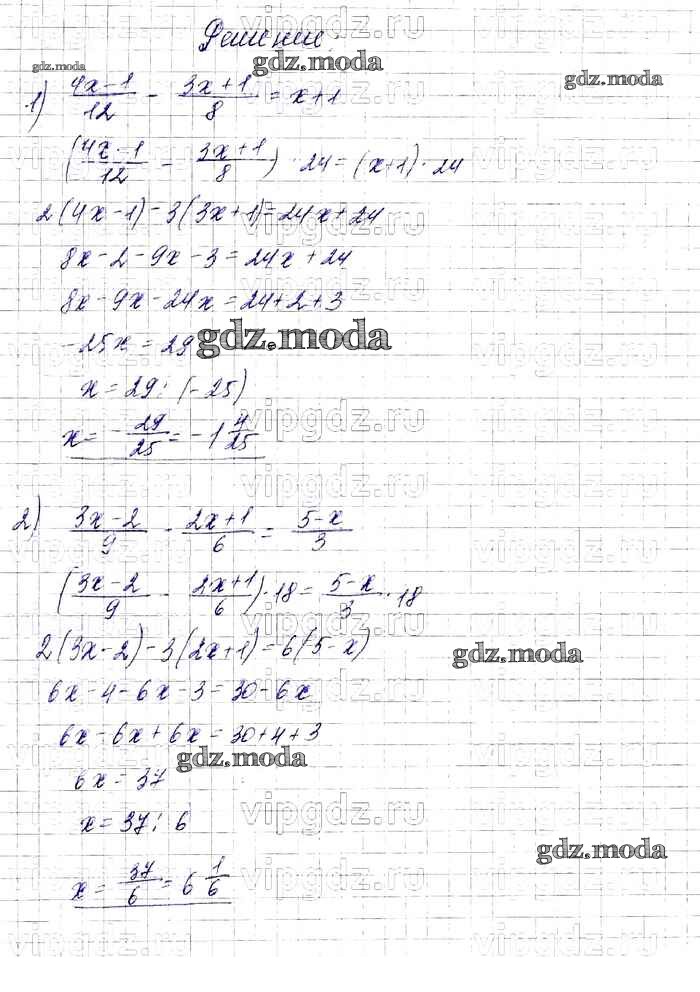 Решение:
1) (4x-1)/12 - (3x+1)/8 = x+1
((4x-1)/12 - (3x+1)/8) · 24 = (x+1) · 24
2(4x-1) - 3(3x+1) = 24x + 24
8x - 2 - 9x - 3 = 24x + 24
8x - 9x - 24x = 24 + 2 + 3
-25x = 29
x = 29 : (-25)
x = -29/25 = -1 4/25
2) (3x-2)/9 - (2x+1)/6 = (5-x)/3
((3x-2)/9 - (2x+1)/6) · 18 = (5-x)/3 · 18
2(3x-2) - 3(2x+1) = 6(5-x)
6x - 4 - 6x - 3 = 30 - 6x
6x - 6x + 6x = 30 + 4 + 3
6x = 37
x = 37 : 6
x = 37/6 = 6 1/6
gdz.moda
gdz.moda
gdz.moda
gdz.moda
gdz.moda
gdz.moda
gdz.moda
vipgdz.ru